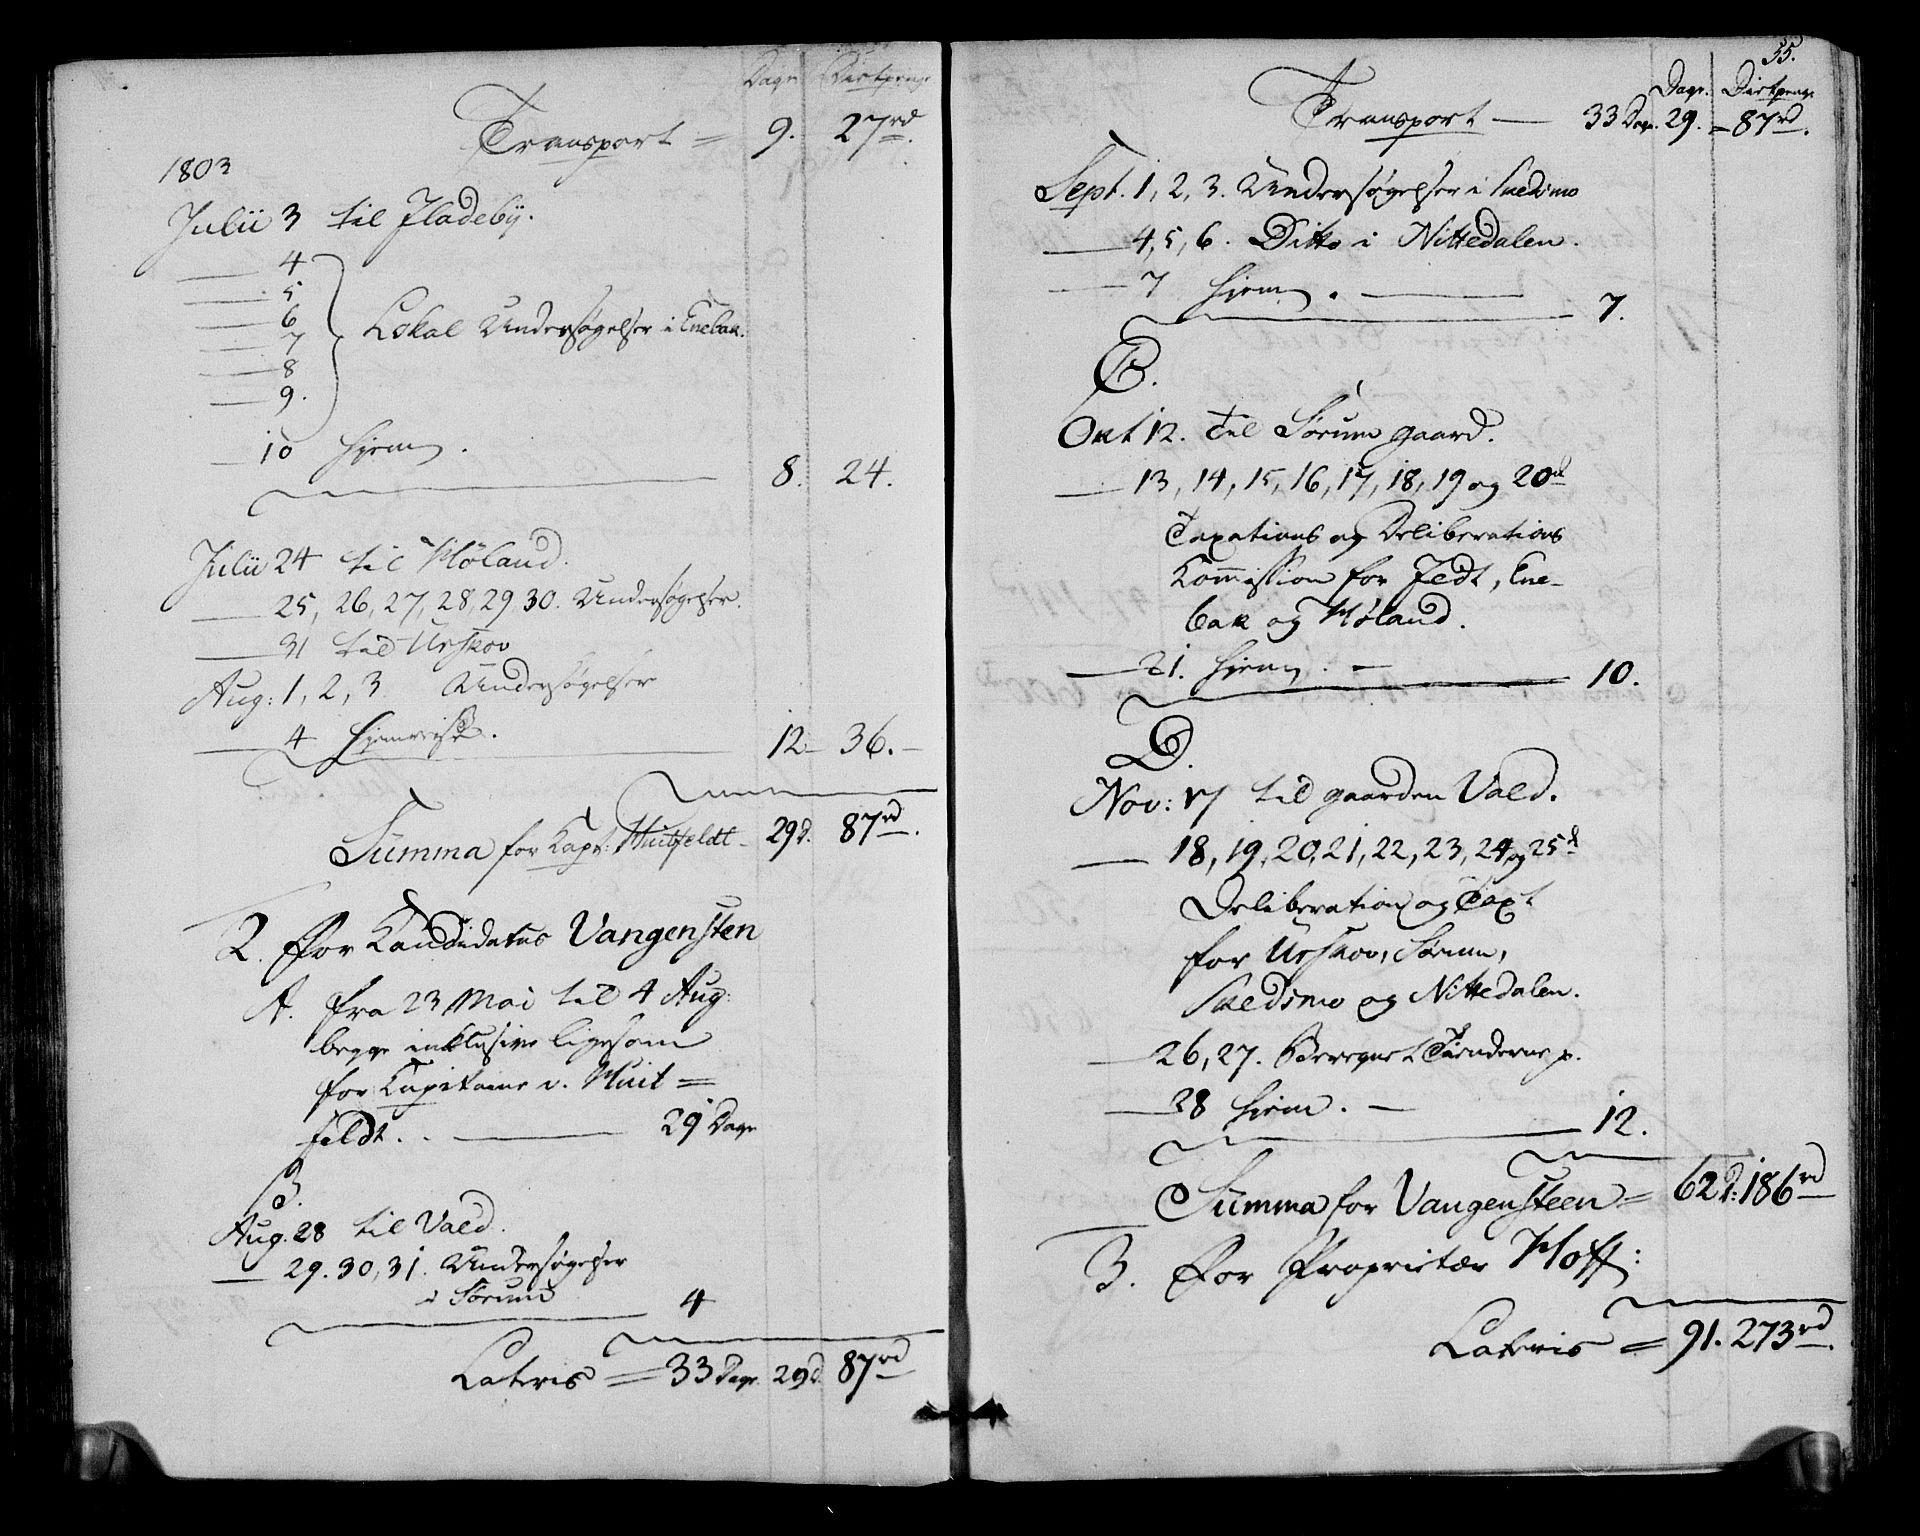 Dage Diætpenge
Transport = 9. 27rd.
1803
Julii 3 til Fladebÿ.
— 4
— 5
— 6
— 7
— 8
— 9.
Lokal Undersøgelser i Enebak.
— 10 hjem.
8. 24.
Julii 24 til Høland.
— 25, 26, 27, 28, 29 30. Undersøgelser.
— 31 til Urskov
Aug: 1, 2, 3. Undersøgelser
— 4 hjemreise.
12 — 36. —
Summa for Kapt: Huitfeldt — 29d. 87rd.
2. For Kandidatus Vangensten
A. fra 23 Mai til 4 Aug:
begge inklusive ligesom
for Kapitaine v. Huit=
feldt. . — 29 Dage
B.
Aug. 28 til Vald.
— 29. 30, 31. Undersøgelser
i Sørum
4
Lateris = 33 Dage. 29d. 87rd
55.
Dage. Diætpenge
Transport — 33 Dage. 29. — 87rd.
Sept. 1, 2, 3. Undersøgelser i Skedsmo
— 4, 5, 6. Ditto i Nittedalen.
— 7 hjem. —
7.
C.
Okt 12. til Sørum gaard.
— 13, 14, 15, 16, 17, 18, 19 og 20d
Taxations og Deliberations
Kommission for Fedt, Ene-
bak og Høland.
— 21. hjem. —
10.
D.
Nov: 17 til gaarden Vald.
— 18, 19, 20, 21, 22, 23, 24 og 25d
Deliberation og Taxt
for Urskov, Sørum,
Skedsmo og Nittedalen.
— 26, 27. Beregnet Tienderne p.
— 28 hjem. —
12.
Summa for Vangensteen = 62d: 186rd
3. For Proprietær Hoff:
Lateris = 91. 273rd.